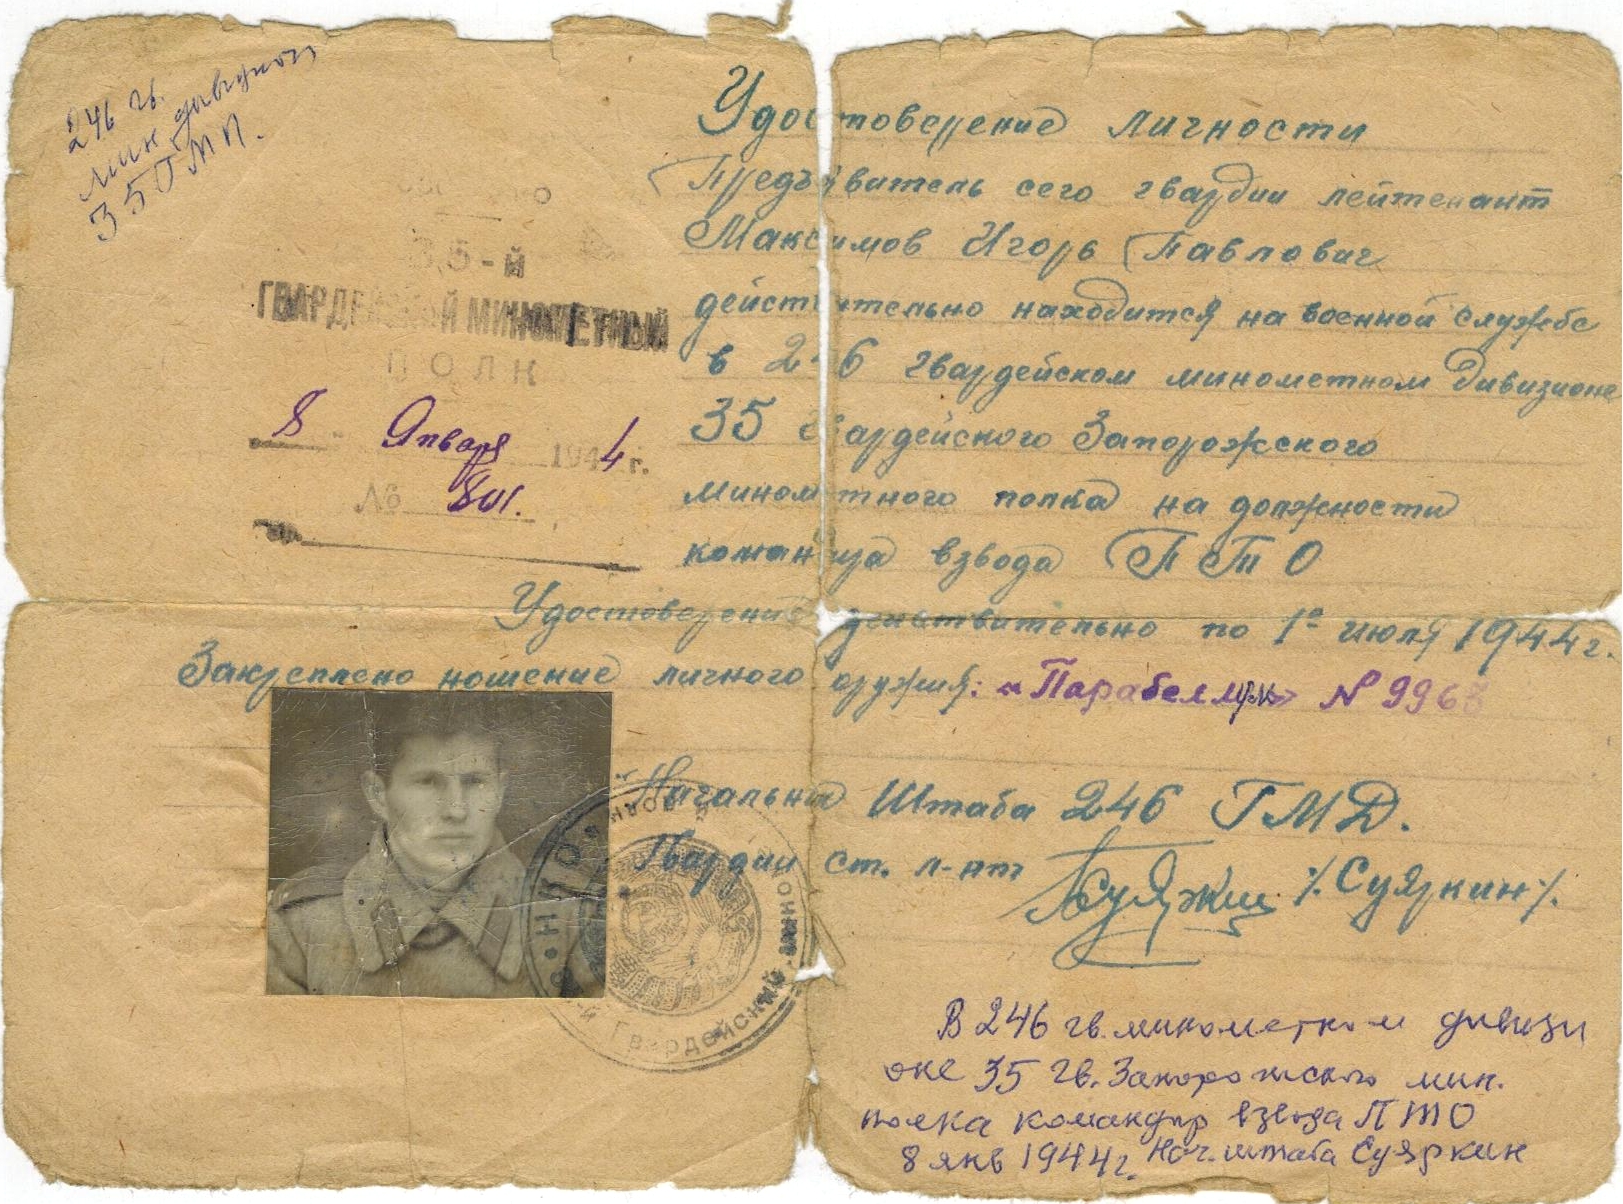 246 гв.
мин дивизион
35 ГМП.
35-й
ГВАРДЕЙСКИЙ МИНОМЕТНЫЙ
ПОЛК
8 - Января 1944 г.
№ 801.
Удостоверение личности
Предъявитель сего гвардии лейтенант
Максимов Игорь Павлович
действительно находится на военной службе
в 246 гвардейском минометном дивизионе
35 гвардейского Запорожского
минометного полка на должности
командира взвода ПТО
Удостоверение действительно по 1е июля 1944 г.
Закреплено ношение личного оружия: „Парабеллум" № 9968
Начальник Штаба 246 ГМД.
Гвардии ст. л-нт /Суяркин/.
НКО
й Гвардейский Мино
В 246 гв. минометном дивизи
оне 35 гв. Запорожского мин.
полка командир взвода ПТО
8 янв 1944 г. Нач. штаба Суяркин